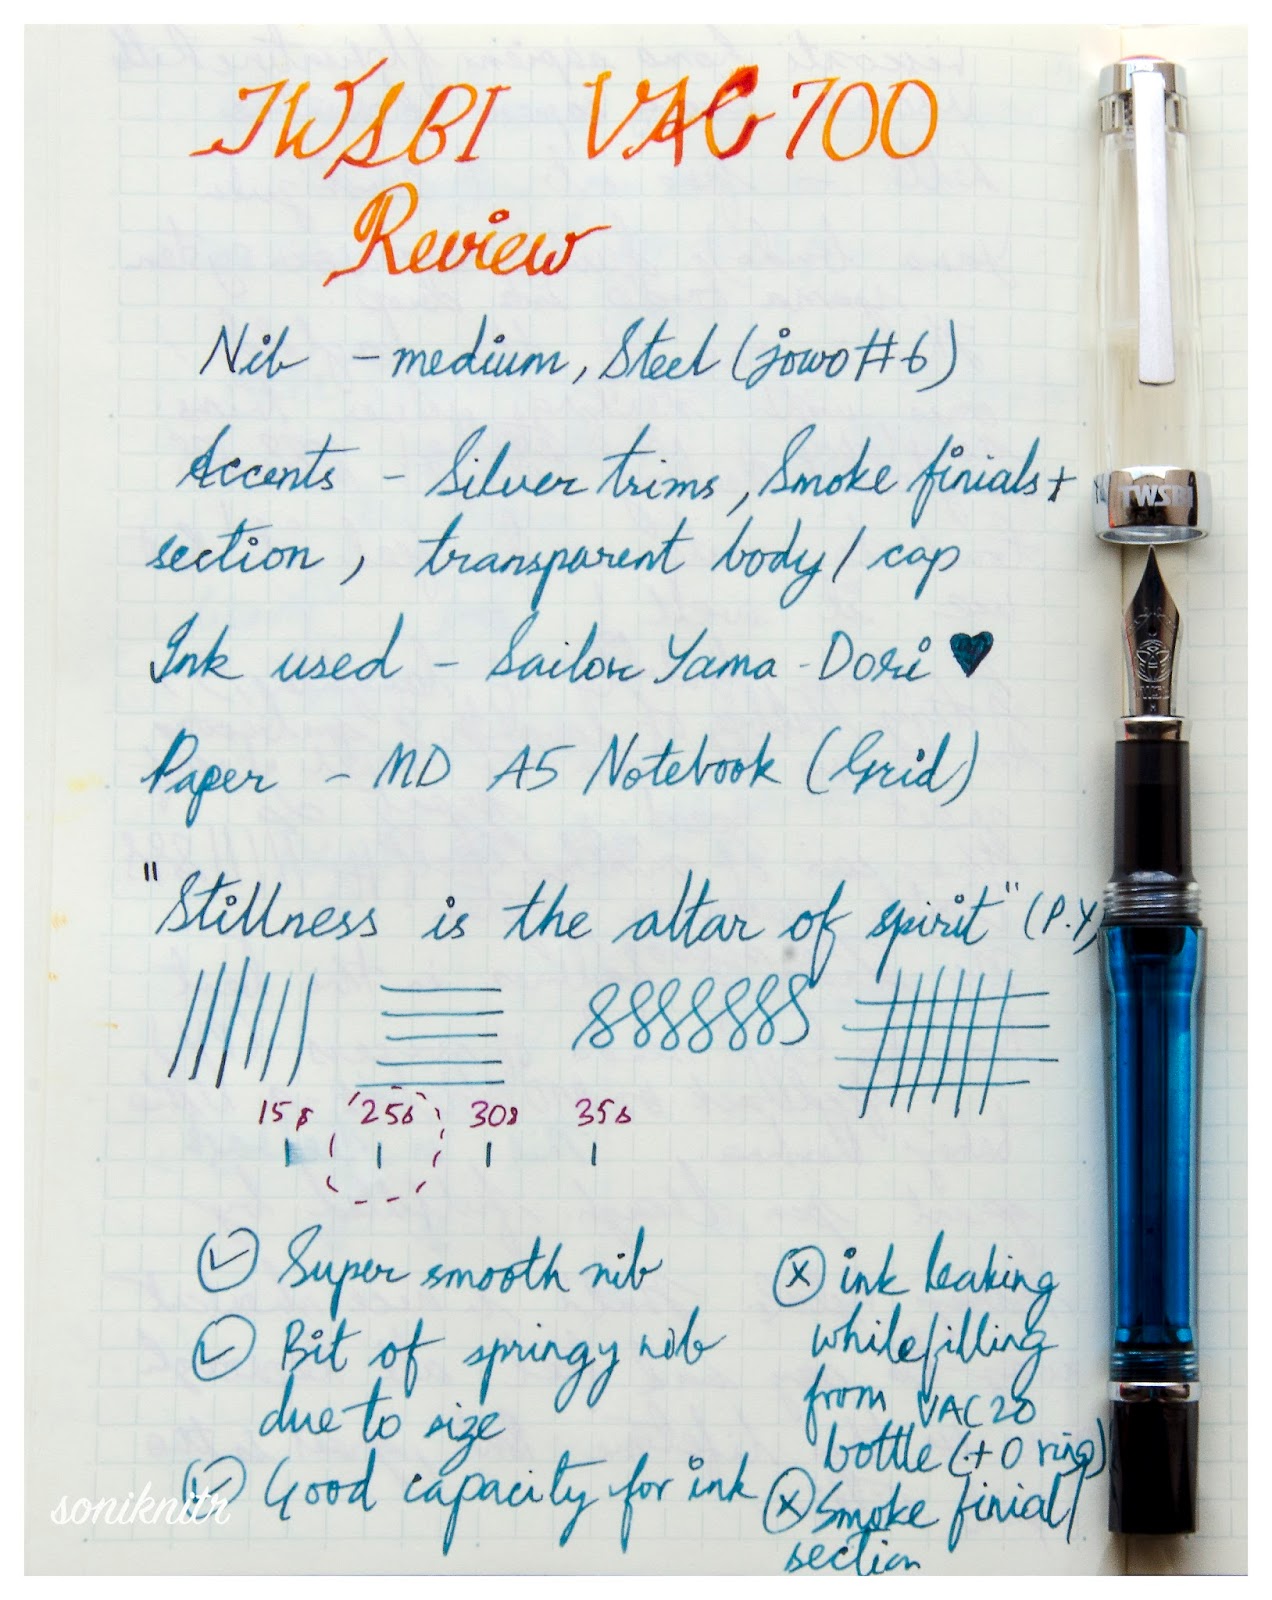 TWSBI VAC 700
Review
Nib - medium, Steel (jowo #6)
Accents - Silver trims, Smoke finials +
section, transparent body / cap
Ink used - Sailor Yama-Dori ♥
Paper - MD A5 Notebook (Grid)
"Stillness is the altar of spirit" (P.Y)
15s 25s 30s 35s
Super smooth nib
Bit of springy nib
due to size
Good capacity for ink
ink leaking
while filling
from VAC 20
bottle (+ O ring)
Smoke finial /
section
TWSBI
soniknitr